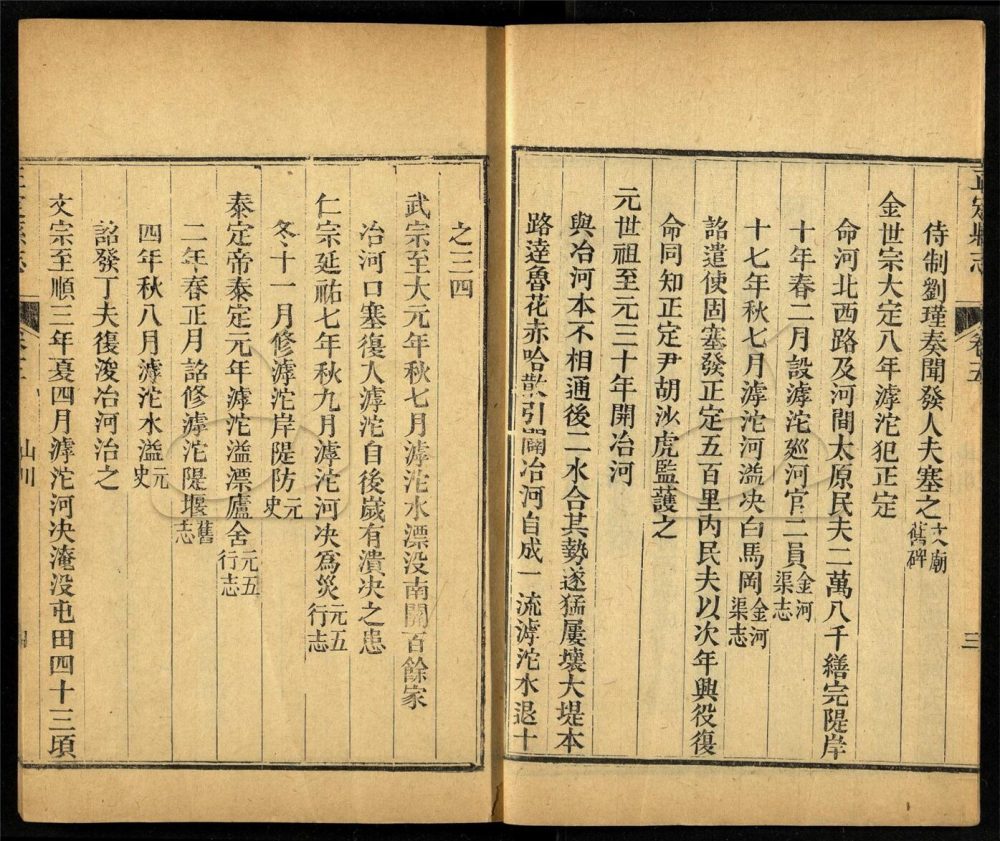 正定縣志
卷五
三
侍制劉瑾奏聞發人夫塞之文廟舊碑
金世宗大定八年滹沱犯正定
命河北西路及河間太原民夫二萬八千繕完隄岸
十年春二月設滹沱廵河官二員金河渠志
十七年秋七月滹沱河溢决白馬岡金河渠志
詔遣使固塞發正定五百里內民夫以次年興役復
命同知正定尹胡沙虎監護之
元世祖至元三十年開冶河
與冶河本不相通後二水合其勢遂猛屢壞大堤本
路達魯花赤哈散引闢冶河自成一流滹沱水退十
之三四
武宗至大元年秋七月滹沱水漂没南關百餘家
冶河口塞復入滹沱自後歲有潰决之患
仁宗延祐七年秋九月滹沱河决爲災元五行志
冬十一月修滹沱岸隄防元史
泰定帝泰定元年滹沱溢漂廬舍元五行志
二年春正月詔修滹沱隄堰舊志
四年秋八月滹沱水溢元史
詔發丁夫復浚冶河治之
文宗至順三年夏四月滹沱河决淹没屯田四十三頃
山川